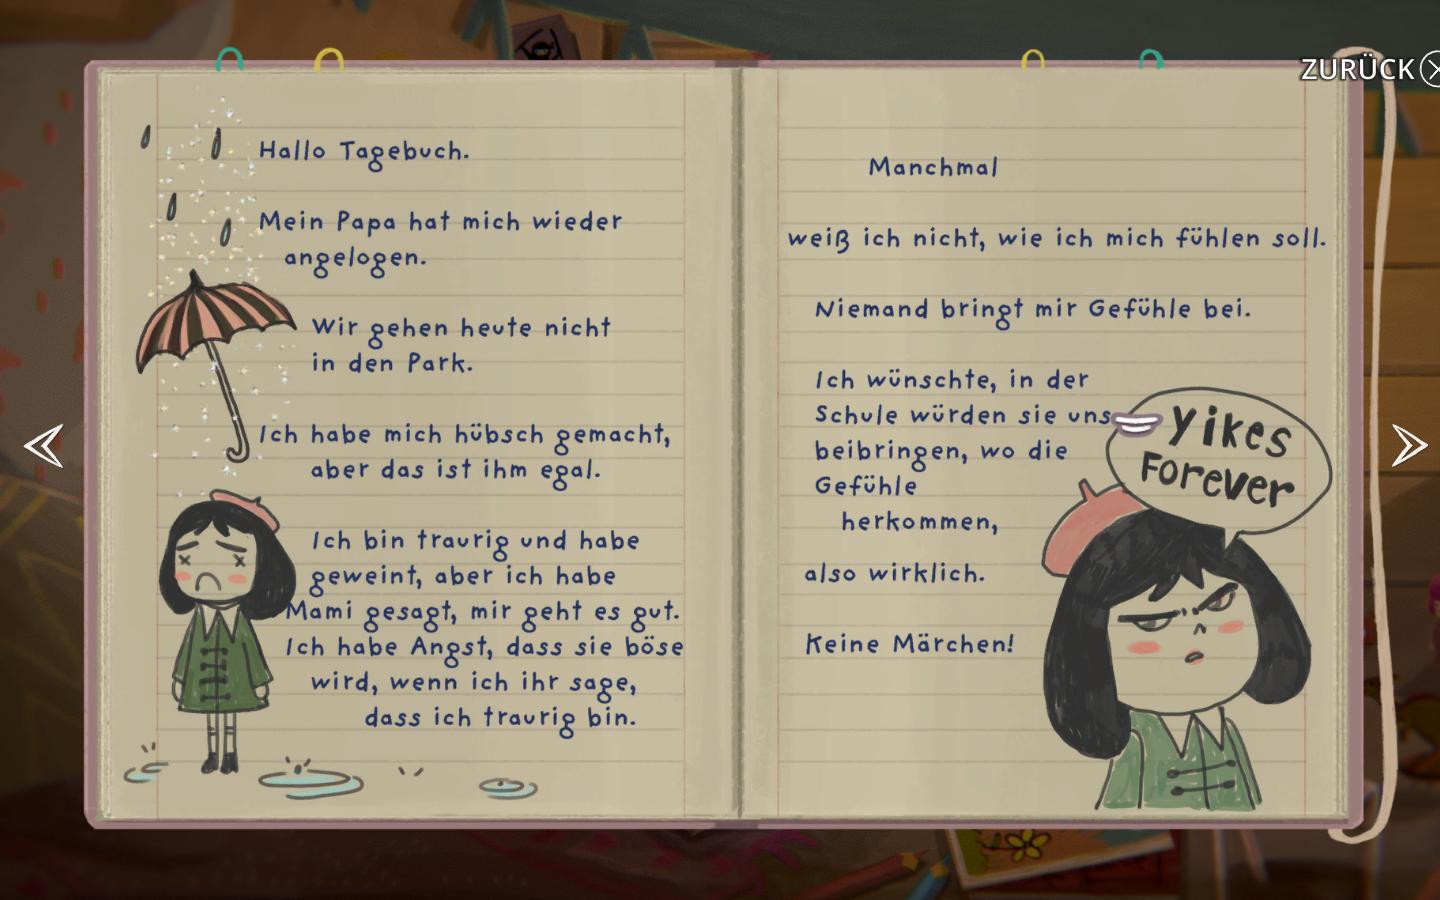 ZURÜCK
Hallo Tagebuch.
Mein Papa hat mich wieder
angelogen.
Wir gehen heute nicht
in den Park.
Ich habe mich hübsch gemacht,
aber das ist ihm egal.
Ich bin traurig und habe
geweint, aber ich habe
Mami gesagt, mir geht es gut.
Ich habe Angst, dass sie böse
wird, wenn ich ihr sage,
dass ich traurig bin.
Manchmal
weiß ich nicht, wie ich mich fühlen soll.
Niemand bringt mir Gefühle bei.
Ich wünschte, in der
Schule würden sie uns
beibringen, wo die
Gefühle
herkommen,
also wirklich.
Keine Märchen!
Yikes
Forever